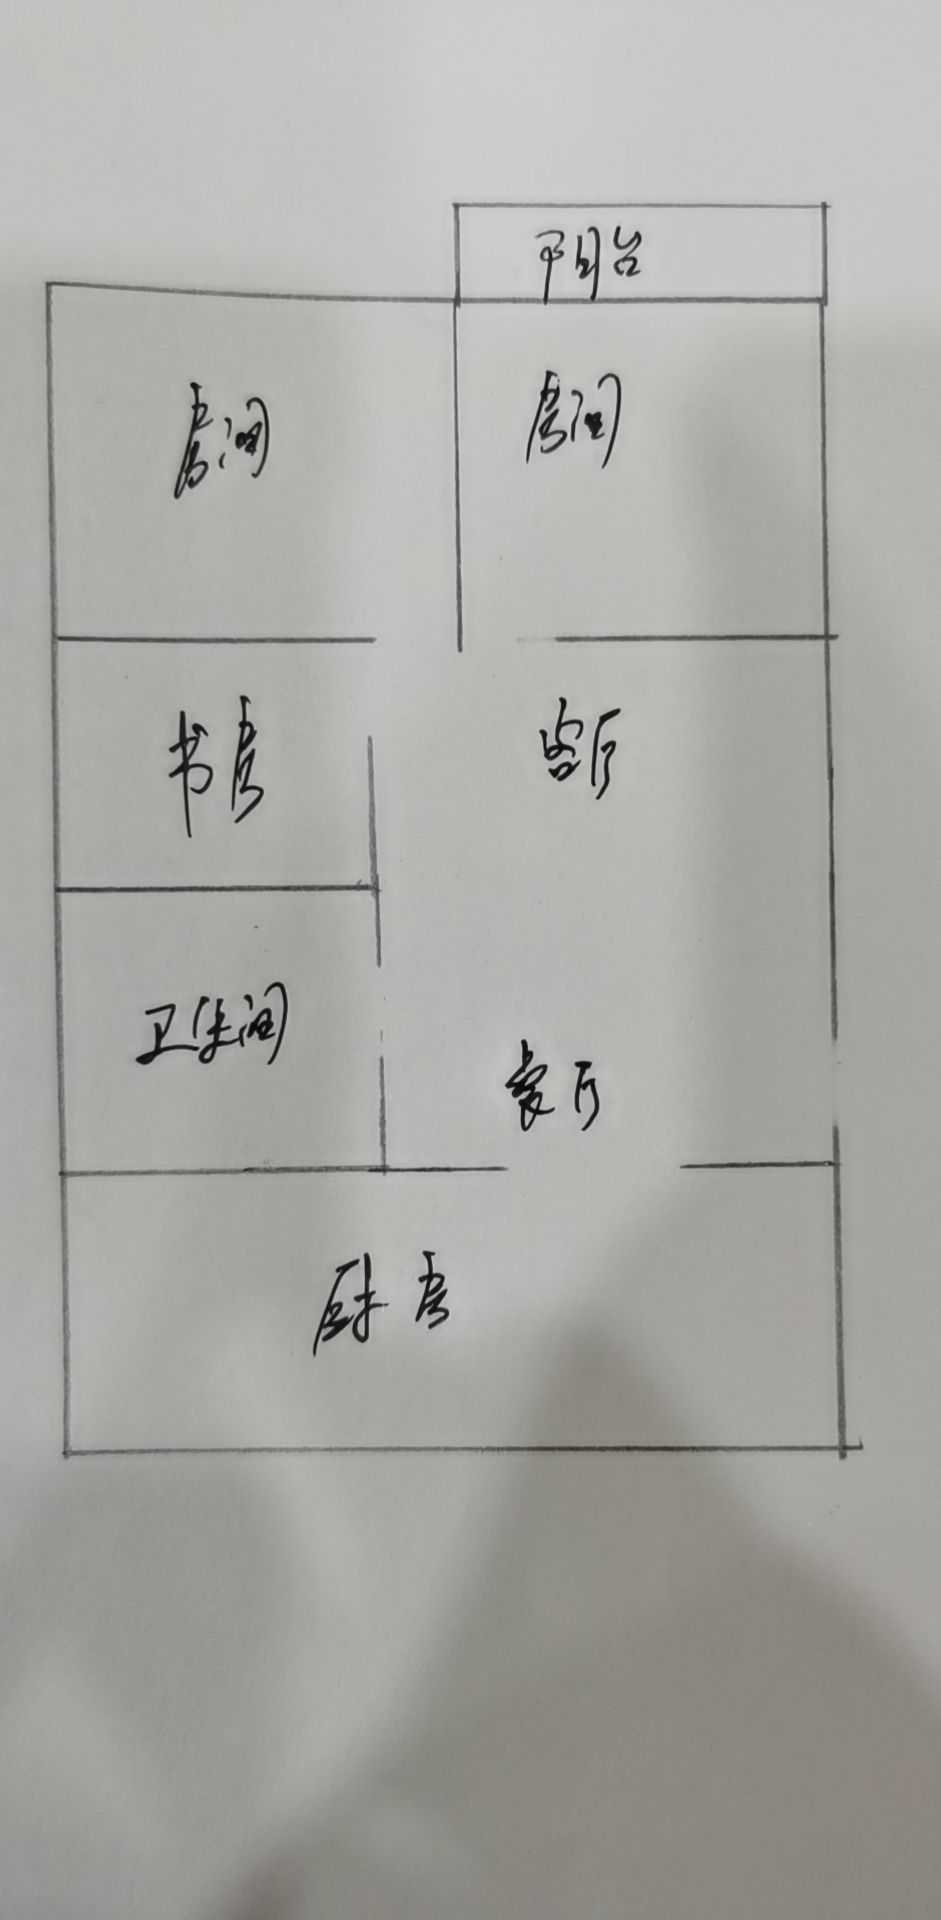 阳台
房间 房间
书房 客厅
卫生间
餐厅
厨房